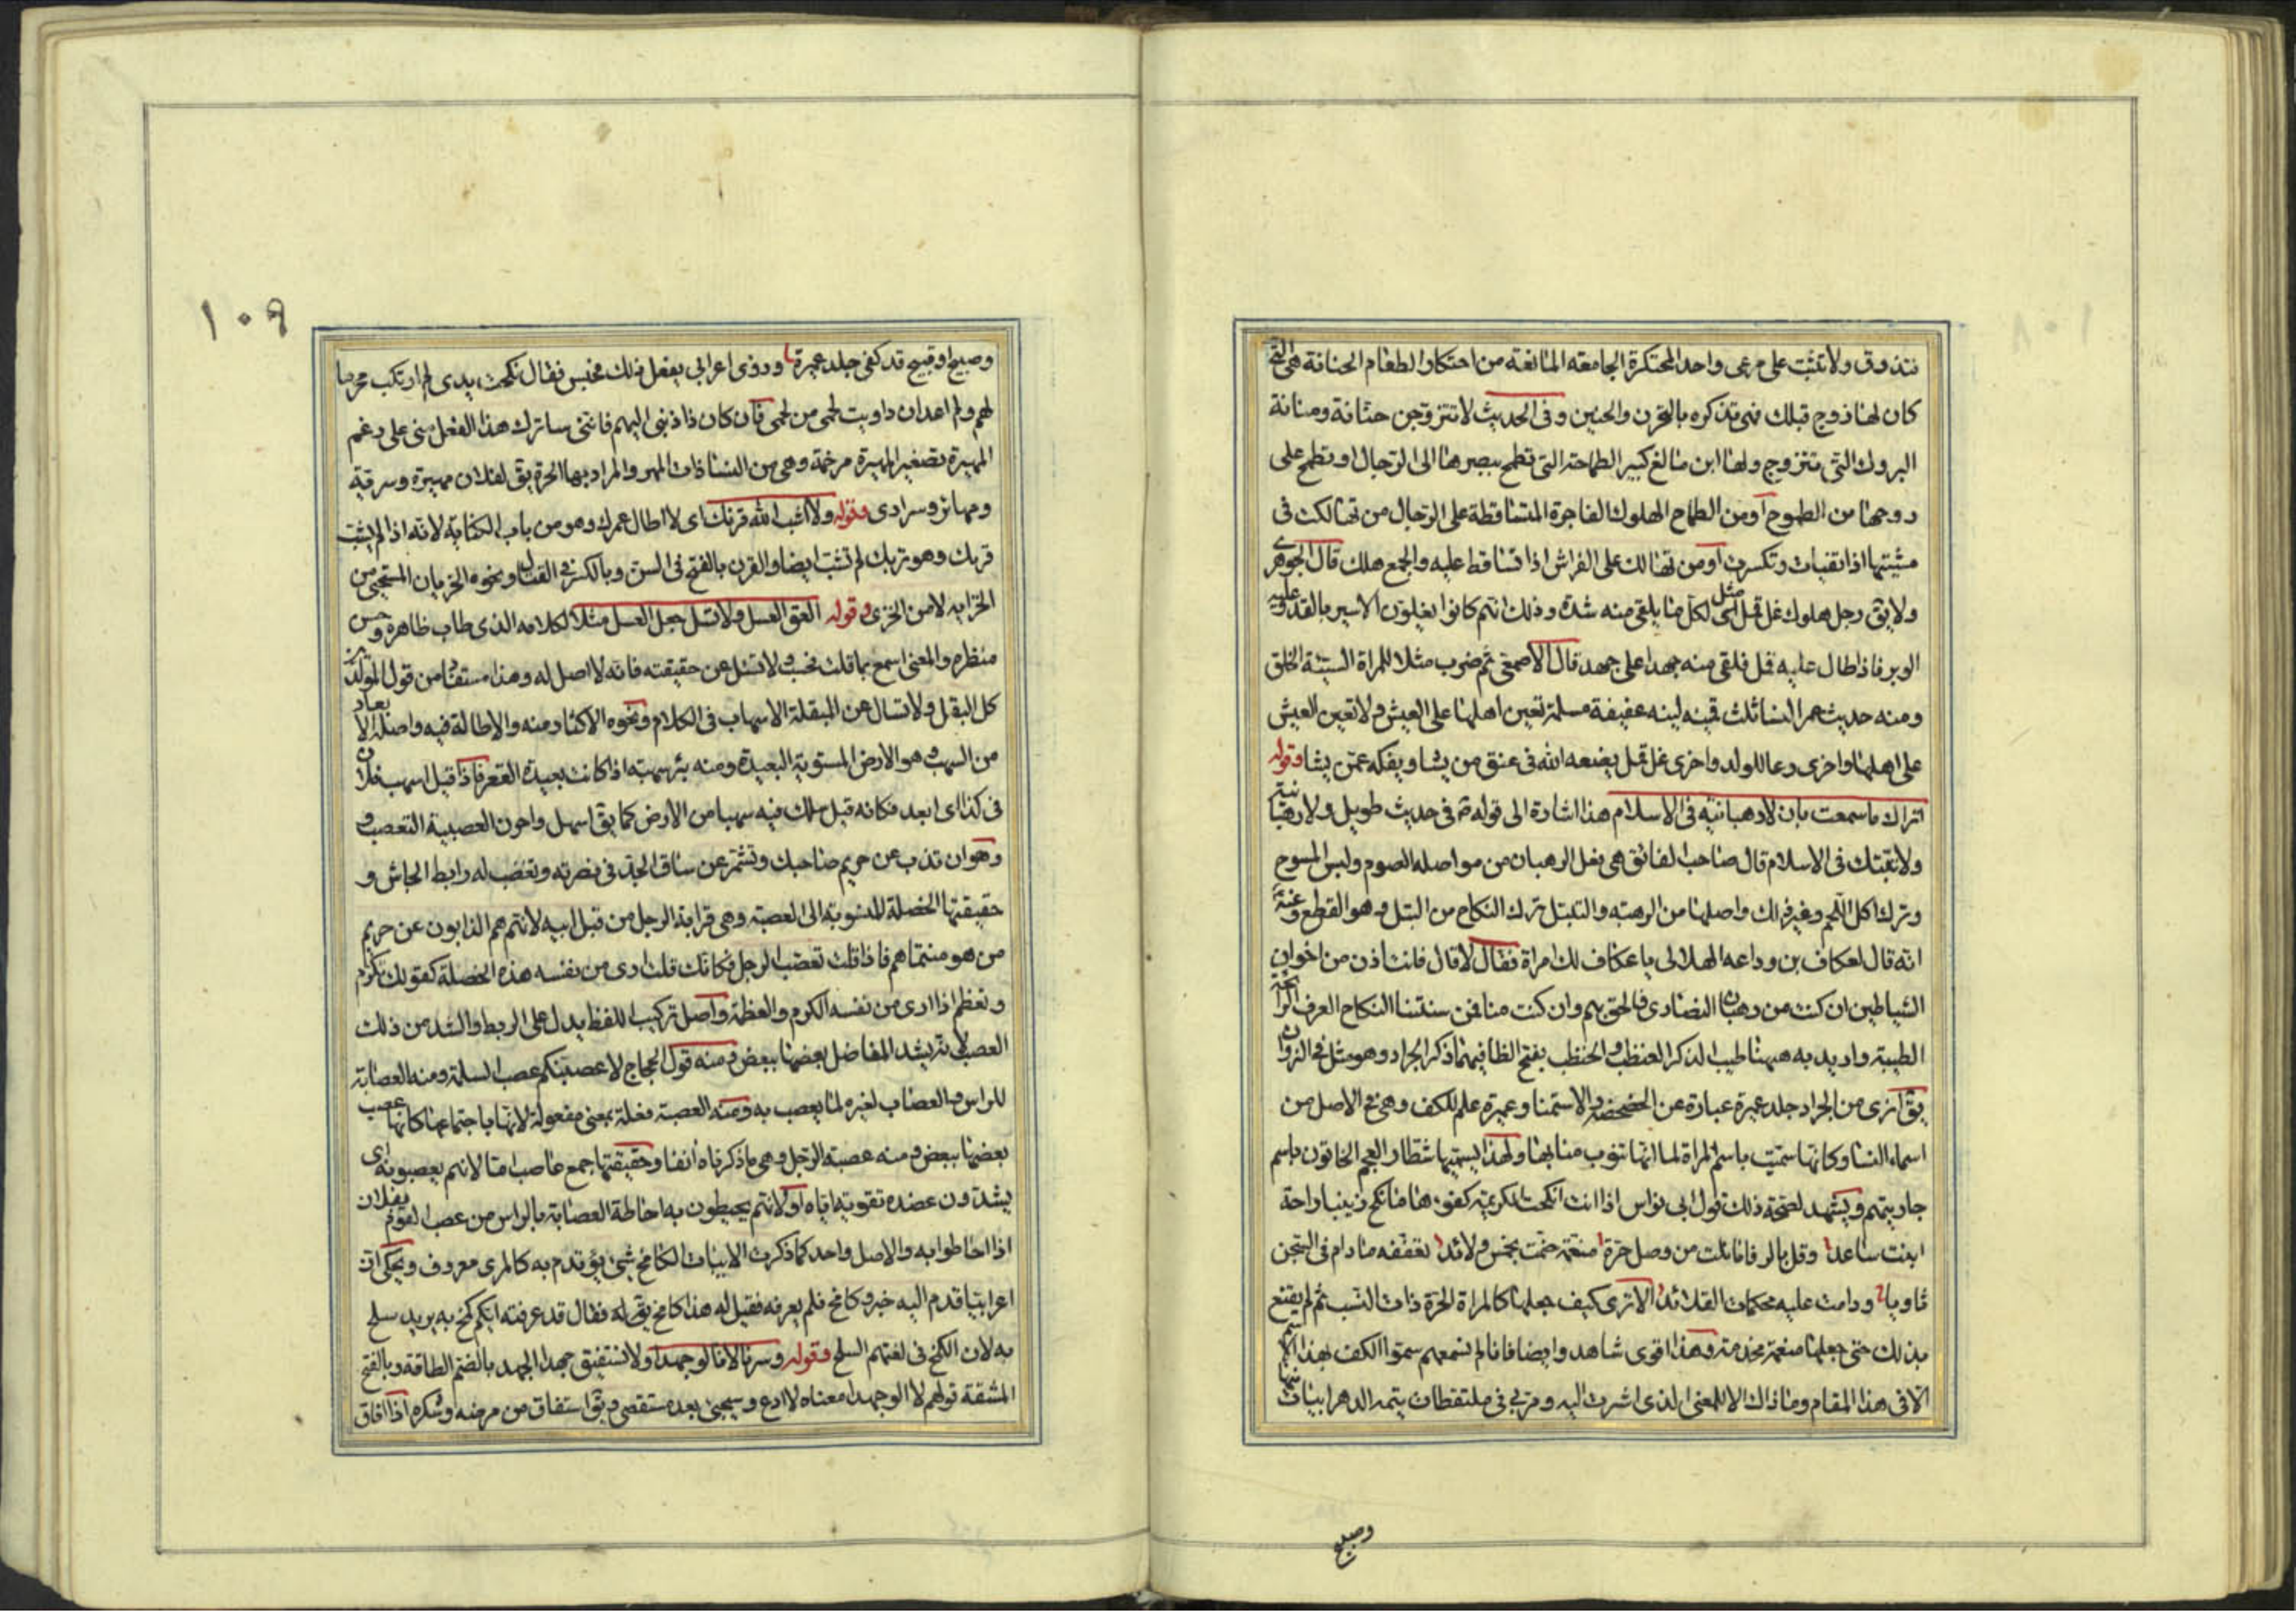 فتذوق ولا تثبت على مرعى واحد المحتكرة الجامعه المانعة من احتكار الطعام الحنانة هى التى
كان لها زوج قبلك فهى تذكره بالتحزن والحنين وفى الحديث لا تتزوجن حنانة ومنانة
البروك التى تتزوج ولها ابن بالغ كبير الطماحة التى تطمح ببصرها الى الرجال او تطمح على
زوجها من الطموح او من الطماح الهلوك الفاجرة المتساقطة على الرجال من تهالكت فى
مشيتها اذا تفيات وتكسرت او من تهالك على الفراش اذا تساقط عليه والجمع هلك قال الجوهرى
ولا يق رجل هلوك غل قمل مثل لكل ما يلقى منه شدة وذلك انهم كانوا يغلون الاسير بالقد وعليه
الوبر فاذا طال عليه قمل فلقى منه جهدا على جهد قال الاصمعى ثم ضرب مثلا للمراة السيئة الخلق
ومنه حديث عمر النسا ثلث هينه لينه عفيفة مسلمة تعين اهلها على العيش ولا تعين العيش
على اهلها واخرى وعا للولد واخرى غل قمل يضعه الله فى عنق من يشا ويفكه عمن يشا وقوله
اتراك ما سمعت بان لا رهبانيه فى الاسلام هذا اشارة الى قوله ص فى حديث طويل ولا رهبانية
ولا تبتك فى الاسلام قال صاحب الفائق هى فعل الرهبان من مواصله الصوم ولبس المسوح
وترك اكل اللحم وغير ذلك واصلها من الرهبه والتبتل ترك النكاح من البتل وهو القطع وعنه
انه قال لعكاف بن وداعه الهلالى يا عكاف لك امراة فقال لا قال فانت اذن من اخوان
الشياطين ان كنت من رهبان النصارى فالحق بهم وان كنت منا فمن سنتنا النكاح العرف الرائحة
الطيبة واريد به ههنا طيب الذكر العنظب والحنظب بفتح الظا فيهما ذكر الجراد وهو مثل فى النزوان
يق انزى من الجراد جلد عميرة عبارة عن الخضخضة والاستمنا وعميرة علم للكف وهى فى الاصل من
اسماء النسا وكانها سميت باسم المراة لما انها تنوب منابها ولهذا يسميها شطار العجم الخاتون باسم
جاريتهم ويشهد لصحة ذلك قول ابى نواس اذا انت انكحت الكريمة كفوها فانكح زينبا راحة
ابنت ساعد وقل بالرفا ما نلت من وصل حرة منعمة حفت بخمس ولائد تعففه مادام فى السجن
ثاويا ودامت عليه محكمات القلائد الا ترى كيف جعلها كالمراة الحرة ذات النسب ثم لم يقنع
بذلك حتى جعلها منعمة مخدمة وهذا اقوى شاهد وايضا فانا لم نسمعهم سموا الكف بهذا الاسم
الا فى هذا المقام وما ذاك الا للمعنى الذى اشرت اليه ومر بى فى ملتقطات يتمة الدهر ابيات منها
وصبيح
١٠٩
وصبيح او قبيح قد كفى جلد عميرة وروى اعرابى يفعل ذلك فحبس فقال نكحت يدى لم ارتكب محرما
لهم ولم اعد ان داويت لحمى من لحمى فان كان ذا ذنبى اليهم فاننى ساترك هذا الفعل منى على رغم
المهيرة تصغير المهيرة مرخمة وهى من النسا ذات المهر والمراد بها الحرة يق لفلان مهيرة وسرقية
ومهائر وسرارى وقوله ولا اشب الله قرنك اى لا اطال عمرك وهو من باب الكناية لانه اذا لم يشب
قرنك وهو تربك لم تشب ايضا والقرن بالفتح فى السن وبالكسر فى القتال ونحوه الخزيان المستحيى من
الخزايه لا من الخزى وقوله العق العسل ولا تسل جعل العسل مثلا لكلامه الذى طاب ظاهره وحسن
منظره والمعنى اسمع ما قلت فحسب ولا تسئل عن حقيقته فانه لا اصل له وهذا مستفاد من قول المولدين
كل البقل ولا تسال عن المبقلة الاسهاب فى الكلام ونحوه الاكثار منه والاطالة فيه واصله الابعاد
من السهب وهو الارض المستوية البعيدة ومنه بئر سهبة اذا كانت بعيدة القعر فاذا قيل اسهب فلان
فى كذا اى ابعد فكانه قيل سلك فيه سهبا من الارض كما يق اسهل واحزن العصبية التعصب و
وهو ان تذب عن حريم صاحبك وتشمر عن ساق الجد فى نصرته وتغضب له رابط الجاش و
حقيقتها الخصلة المنسوبة الى العصبة وهى قرابة الرجل من قبل ابيه لانهم هم الذابون عن حريم
من هو منتماهم فاذا قلت تعصب الرجل فكانك قلت ارى من نفسه هذه الخصلة كقولك تكرم
وتعظم اذا ارى من نفسه الكرم والعظمة واصل تركيب اللفظ يدل على الربط والشد من ذلك
العصب لانه يشد المفاصل بعضها ببعض ومنه قول الحجاج لاعصبنكم عصب السلمة ومنه العصابة
للراس والعصاب لغيره لما يعصب به ومنه العصبة فعلة بمعنى مفعولة لانها باجتماعها كانها عصب
بعضها ببعض ومنه عصبة الرجل وهى ما ذكرناه انفا وحقيقتها جمع عاصب اما لانهم يعصبونه اى
يشدون عضده تقوية اياه او لانهم يحيطون به احاطة العصابة بالراس من عصب القوم بفلان
اذا احاطوا به والاصل واحد كما ذكرت الابيات الكامخ شىء يؤتدم به كالمرى معروف ويحكى ان
اعرابيا قدم اليه خبز وكامخ فلم يعرفه فقيل له هذا كامخ يق له فقال قد عرفته ايكم كمخ به يريد سلح
به لان الكمخ فى لغتهم السلح وقوله وسرنا لا نالو جهدا ولا نستفيق جهدا الجهد بالضم الطاقة وبالفتح
المشقة قولهم لا الو جهدا معناه لا ادع وسيجىء بعد مستقصى ويق استفاق من مرضه وسكره اذا افاق